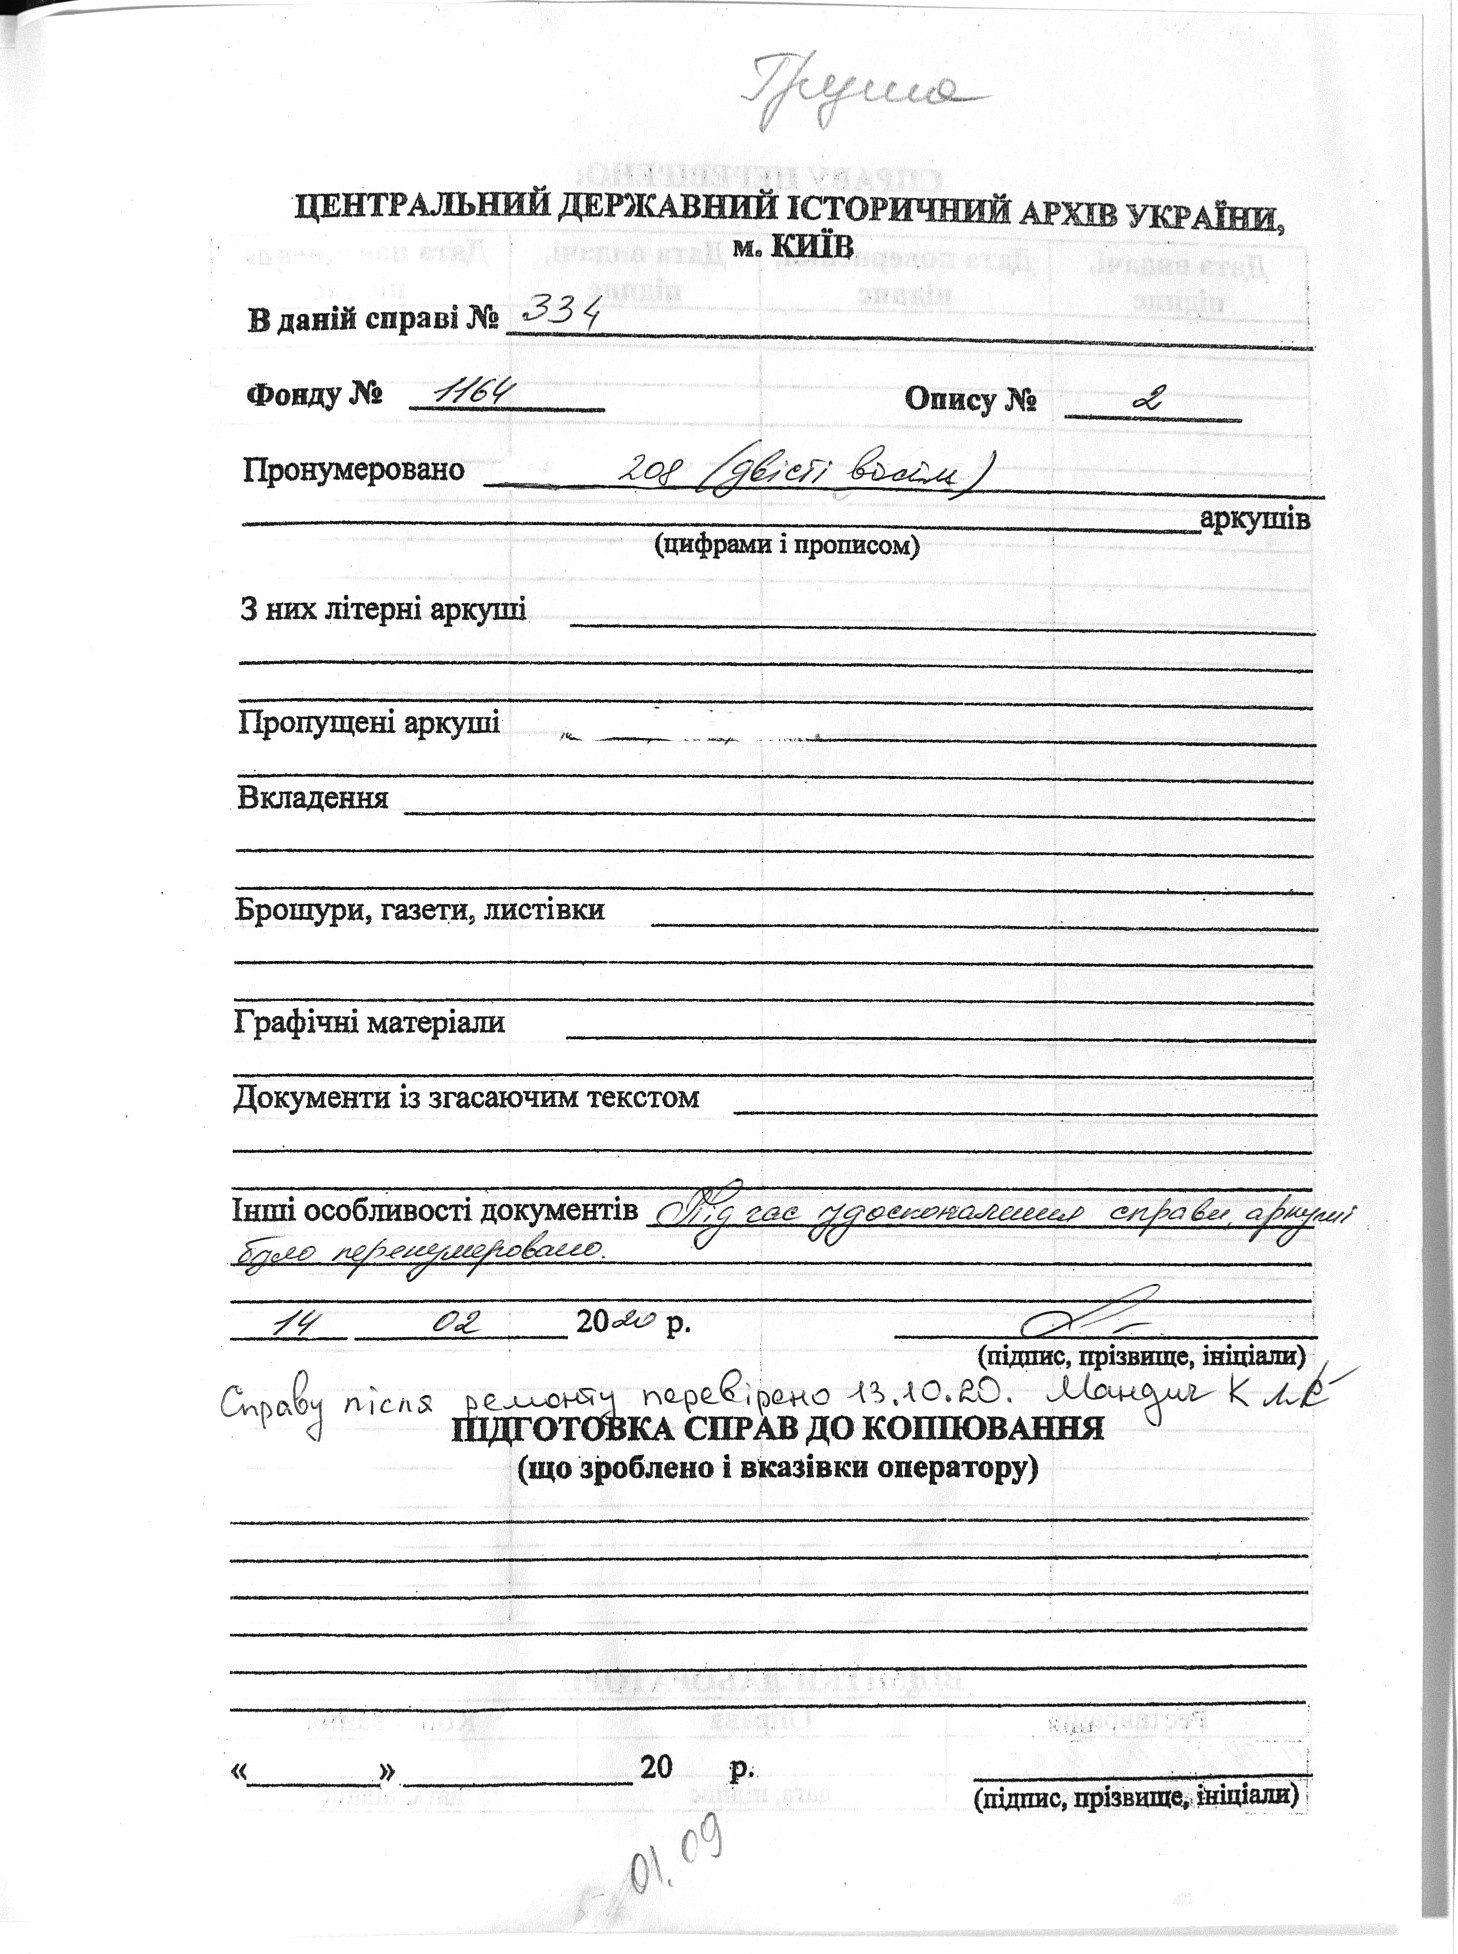 Груша
ЦЕНТРАЛЬНИЙ ДЕРЖАВНИЙ ІСТОРИЧНИЙ АРХІВ УКРАЇНИ,
м. КИЇВ
В даній справі № 334
Фонду № 1164 Опису № 2
Пронумеровано 208 (двісті вісім)
аркушів
(цифрами і прописом)
З них літерні аркуші
Пропущені аркуші
Вкладення
Брошури, газети, листівки
Графічні матеріали
Документи із згасаючим текстом
Інші особливості документів Під час удосконалення справи, аркуші
було перенумеровано.
14 02 2020 р.
(підпис, прізвище, ініціали)
Справу після ремонту перевірено 13.10.20. Мандич К
ПІДГОТОВКА СПРАВ ДО КОПІЮВАННЯ
(що зроблено і вказівки оператору)
« » 20 р.
(підпис, прізвище, ініціали)
01.09